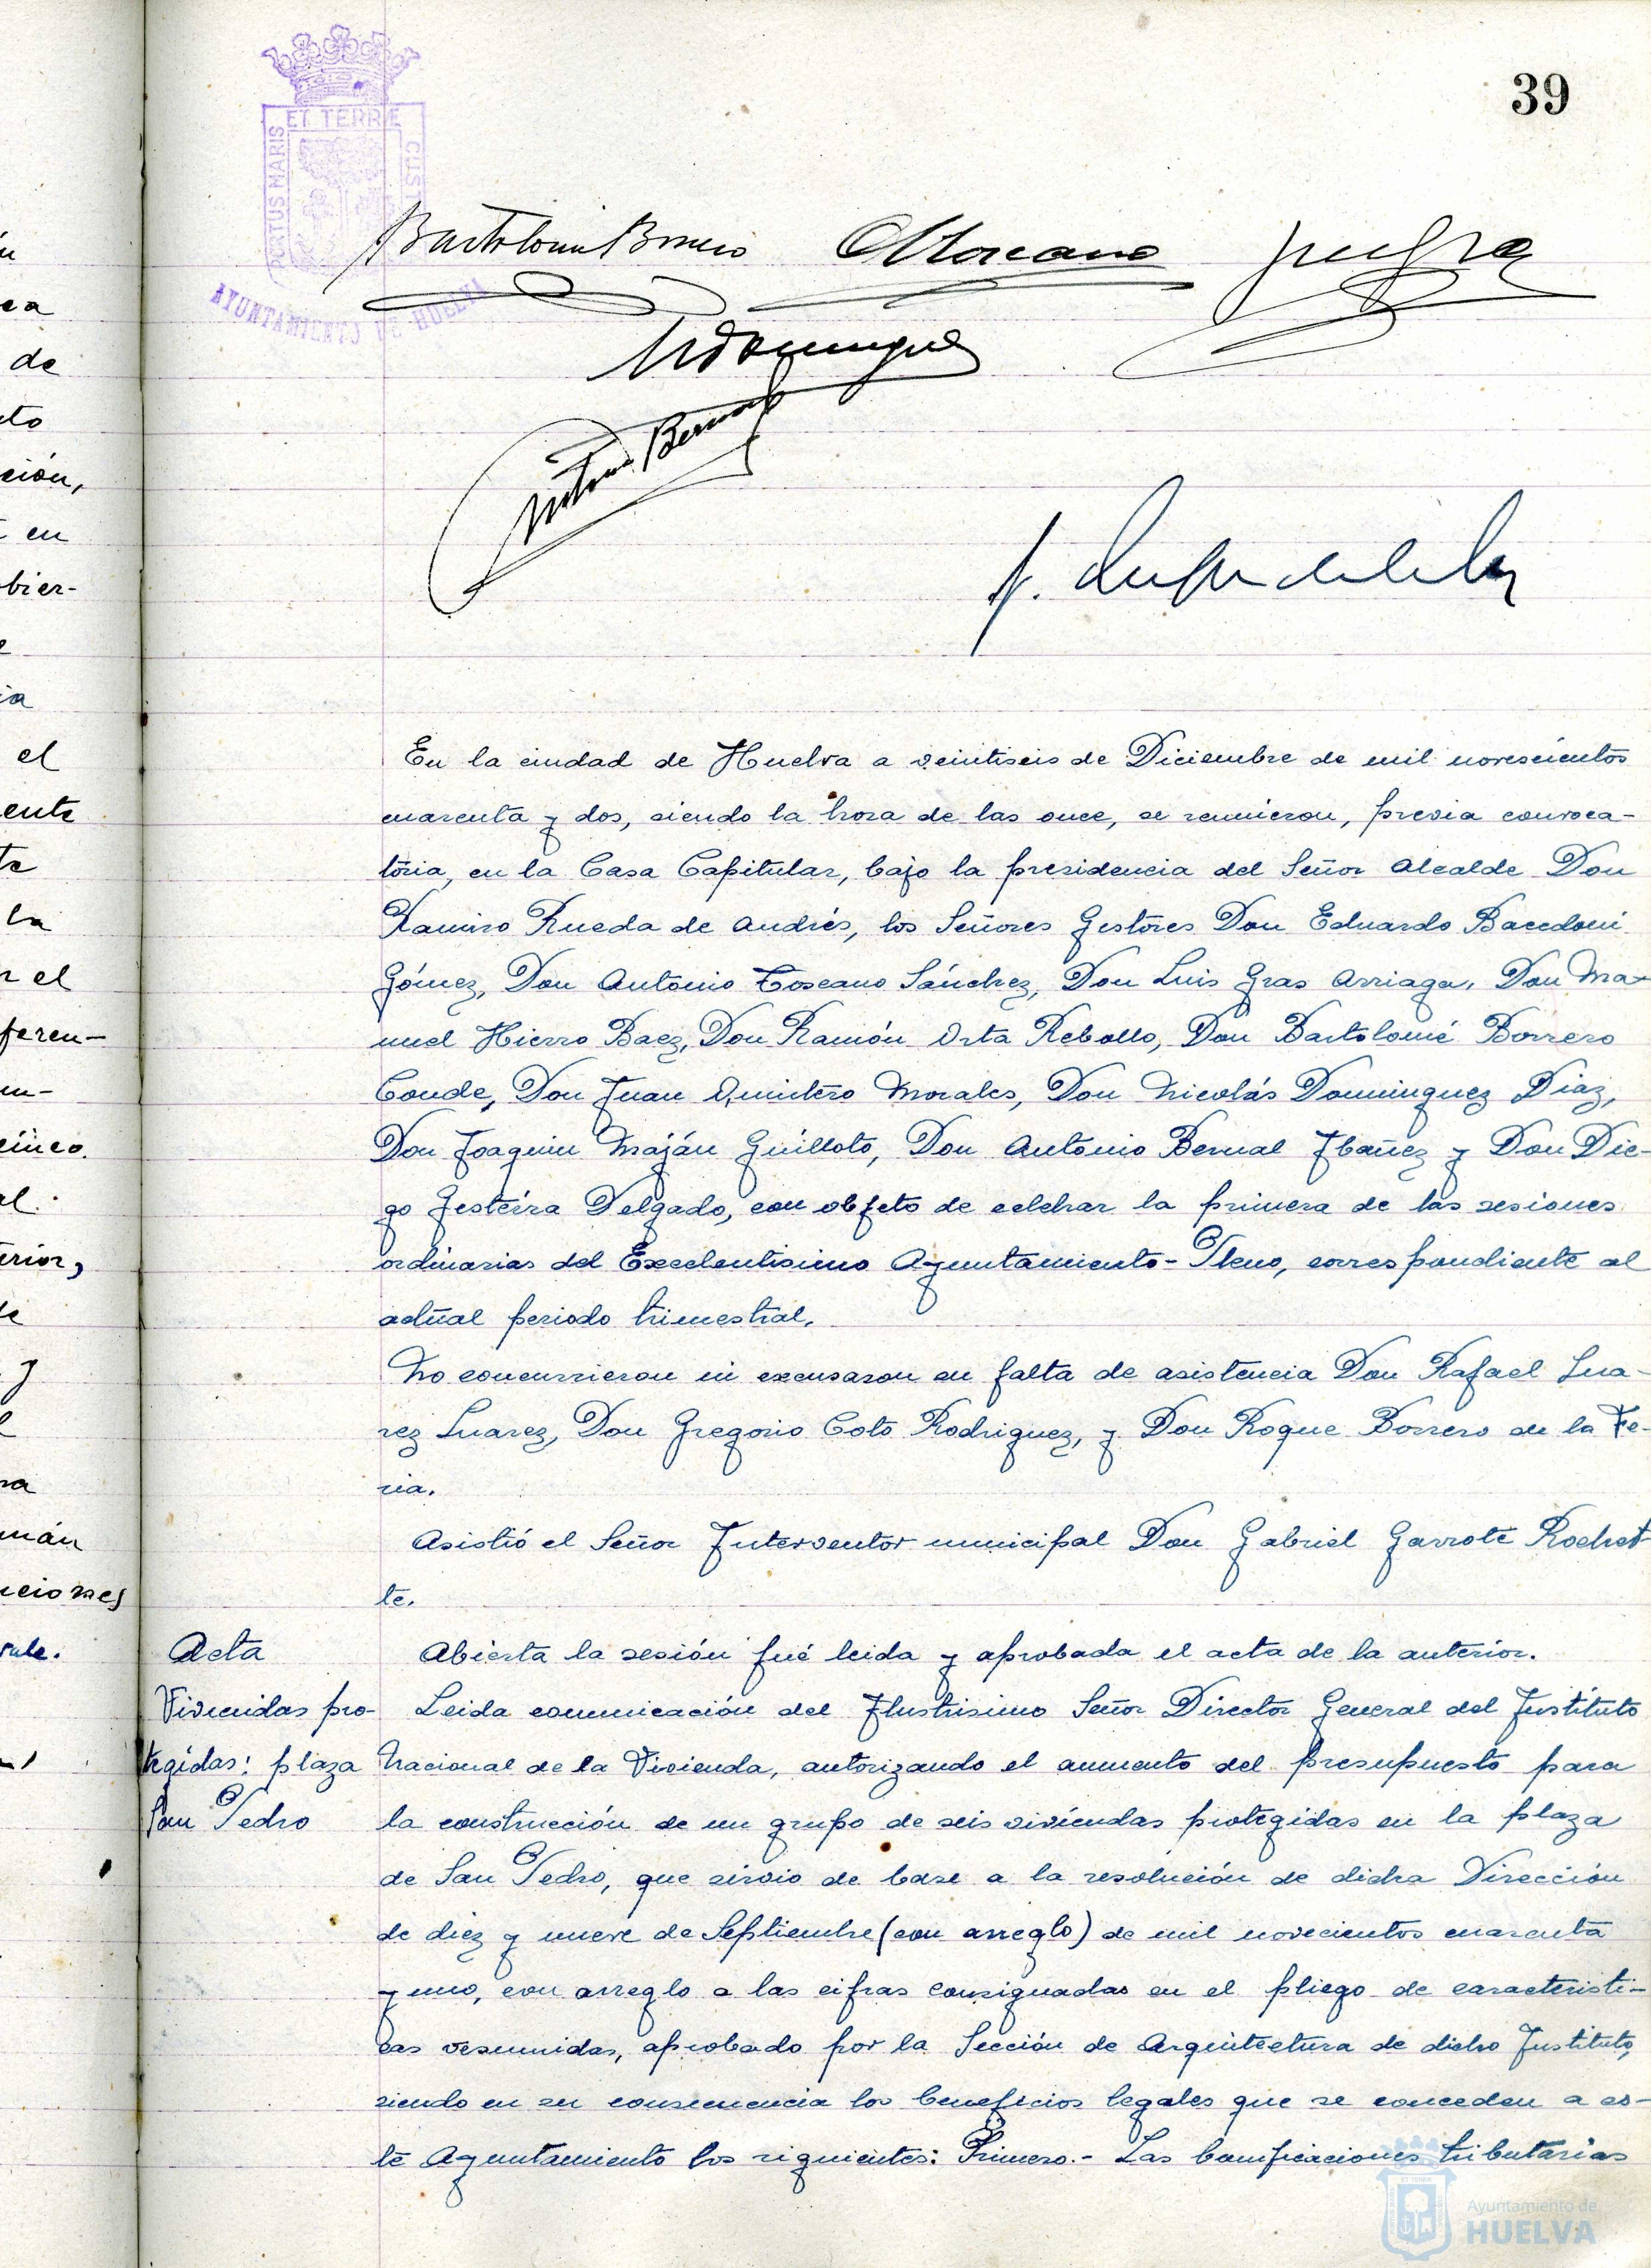 39
ET TERRÆ
PORTUS MARIS
CUST
AYUNTAMIENTO DE HUELVA
Bartolomé Borrero
Antonio Bernal
de
ción,
en
bier-
el
ente
la
r el
feren-
cinco.
al.
erior,
mán
ciones
vale.
En la ciudad de Huelva a veintiseis de Diciembre de mil novescientos
cuarenta y dos, siendo la hora de las once, se reunieron, previa convoca-
toria, en la Casa Capitular, bajo la presidencia del Señor Alcalde Don
Ramiro Rueda de Andrés, los Señores Gestores Don Eduardo Bacedoni
Gómez, Don Antonio Toscano Sánchez, Don Luis Gras Arriaga, Don Ma-
nuel Hierro Baez, Don Ramón Orta Rebollo, Don Bartolomé Borrero
Conde, Don Juan Quintero Morales, Don Nicolás Dominguez Diaz,
Don Joaquin Maján Guilloto, Don Antonio Bernal Ibañez y Don Die-
go Gesteira Delgado, con objeto de celebrar la primera de las sesiones
ordinarias del Excelentisimo Ayuntamiento-Pleno, correspondiente al
actual periodo trimestral.
No concurrieron ni excusaron su falta de asistencia Don Rafael Sua-
rez Suarez, Don Gregorio Coto Rodriguez, y Don Roque Borrero de la Fe-
ria.
Asistió el Señor Interventor municipal Don Gabriel Garrote Rochet-
te.
Acta
Abierta la sesión fué leida y aprobada el acta de la anterior.
Viviendas pro-
tegidas: plaza
San Pedro
Leida comunicación del Ilustrisimo Señor Director General del Instituto
Nacional de la Vivienda, autorizando el aumento del presupuesto para
la construcción de un grupo de seis viviendas protegidas en la plaza
de San Pedro, que sirvio de base a la resolución de dicha Dirección
de diez y nueve de Septiembre (con arreglo) de mil novecientos cuarenta
y uno, con arreglo a las cifras consignadas en el pliego de caracteristi-
cas resumidas, aprobado por la Sección de Arquitectura de dicho Instituto,
siendo en su consecuencia los beneficios legales que se conceden a es-
te Ayuntamiento los siguientes: Primero.- Las bonificaciones tributarias
Ayuntamiento de
HUELVA